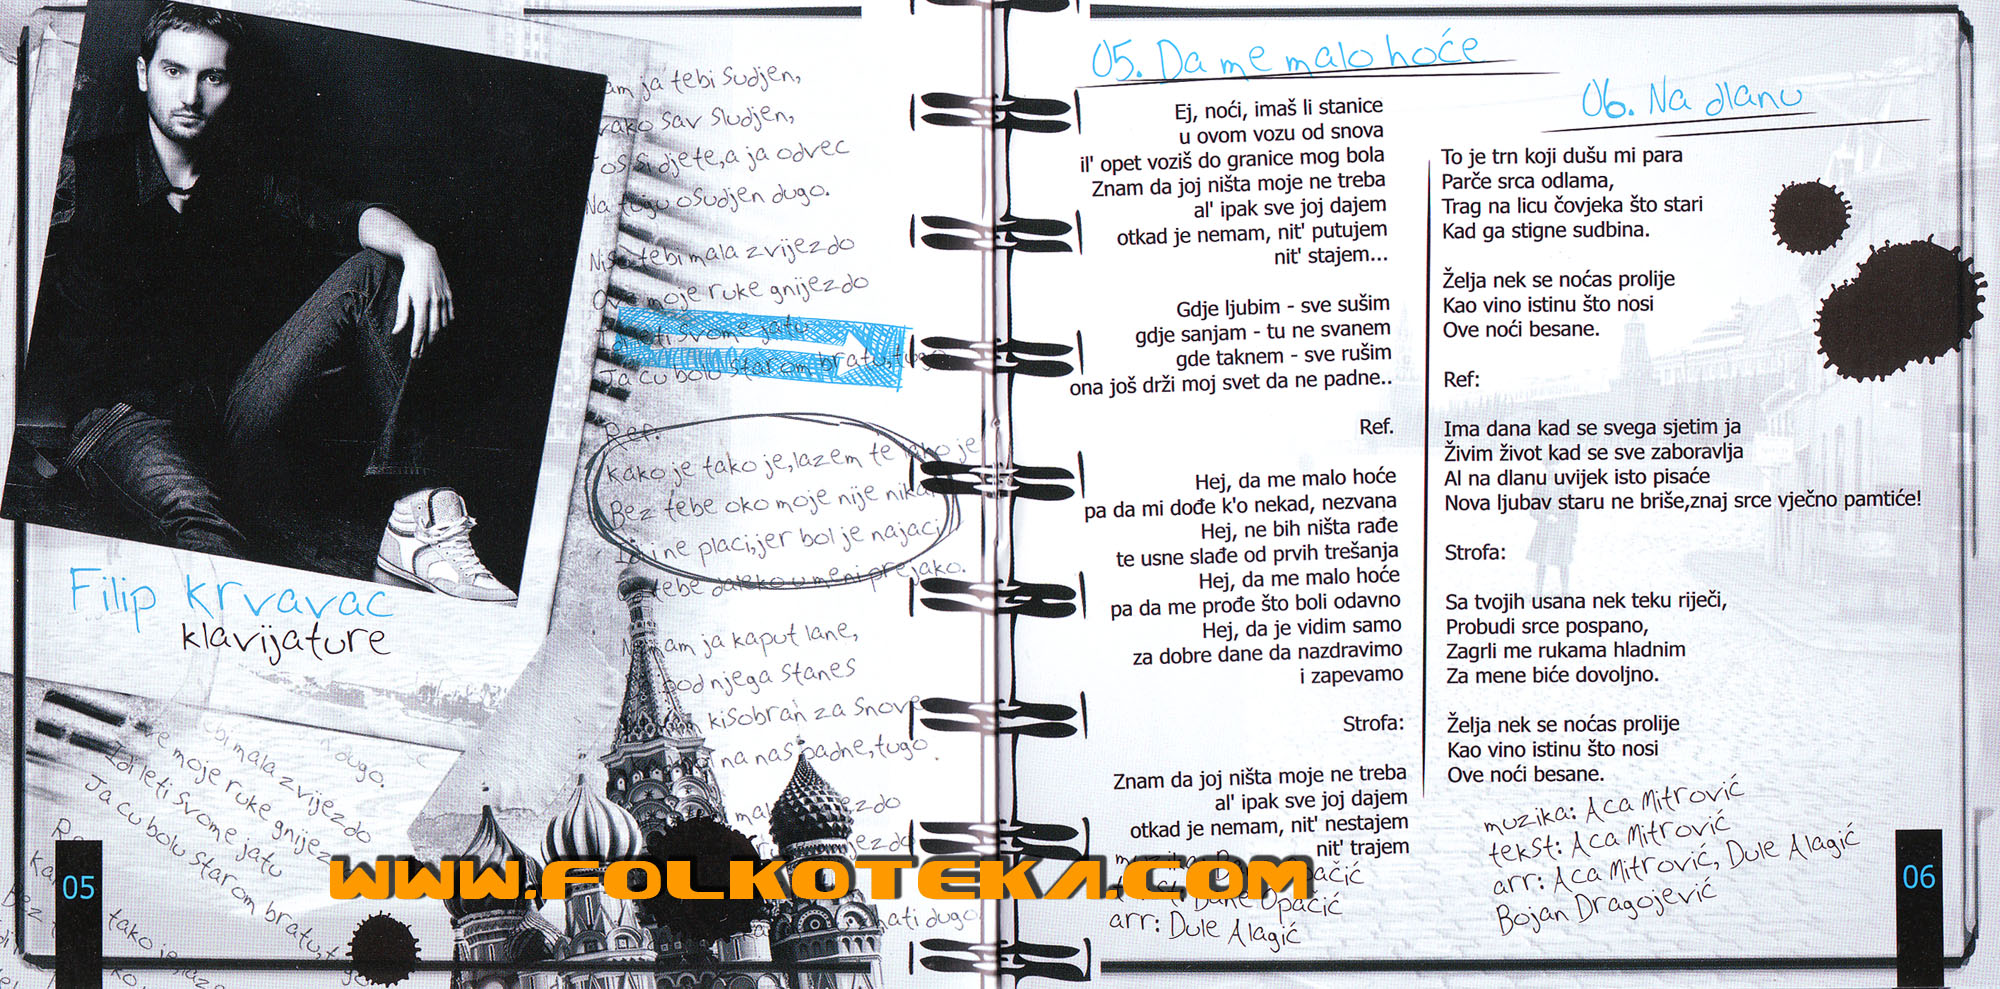 am ja tebi sudjen,
sav sludjen,
djete,a ja odvec
Na tugu osudjen dugo.
tebi mala zvijezdo
moje ruke gnijezdo
leti svome jatu
Ja cu bolu starom bratu,tugo
Ref.
kako je tako je,lazem te
Bez tebe oko moje nije
ne placi,jer bol je najaci
tebe daleko u meni prejako.
am ja kaput lane,
pod njega stanes
kisobran za snove
na nas padne,tugo
Filip Krvavac
klavijature
dugo.
mala zvijezdo
moje ruke
Idi leti svome jatu
Ja cu bolu starom bratu,
tako je,
Bez
05
WWW.FOLKOTEKA.COM
05. Da me malo hoće
Ej, noći, imaš li stanice
u ovom vozu od snova
il' opet voziš do granice mog bola
Znam da joj ništa moje ne treba
al' ipak sve joj dajem
otkad je nemam, nit' putujem
nit' stajem...
Gdje ljubim - sve sušim
gdje sanjam - tu ne svanem
gde taknem - sve rušim
ona još drži moj svet da ne padne..
Ref.
Hej, da me malo hoće
pa da mi dođe k'o nekad, nezvana
Hej, ne bih ništa rađe
te usne slađe od prvih trešanja
Hej, da me malo hoće
pa da me prođe što boli odavno
Hej, da je vidim samo
za dobre dane da nazdravimo
i zapevamo
Strofa:
Znam da joj ništa moje ne treba
al' ipak sve joj dajem
otkad je nemam, nit' nestajem
nit' trajem
Opačić
arr: Dule Alagić
06. Na dlanu
To je trn koji dušu mi para
Parče srca odlama,
Trag na licu čovjeka što stari
Kad ga stigne sudbina.
Želja nek se noćas prolije
Kao vino istinu što nosi
Ove noći besane.
Ref:
Ima dana kad se svega sjetim ja
Živim život kad se sve zaboravlja
Al na dlanu uvijek isto pisaće
Nova ljubav staru ne briše,znaj srce vječno pamtiće!
Strofa:
Sa tvojih usana nek teku riječi,
Probudi srce pospano,
Zagrli me rukama hladnim
Za mene biće dovoljno.
Želja nek se noćas prolije
Kao vino istinu što nosi
Ove noći besane.
muzika: Aca Mitrović
tekst: Aca Mitrović
arr: Aca Mitrović, Dule Alagić
Bojan Dragojević
06